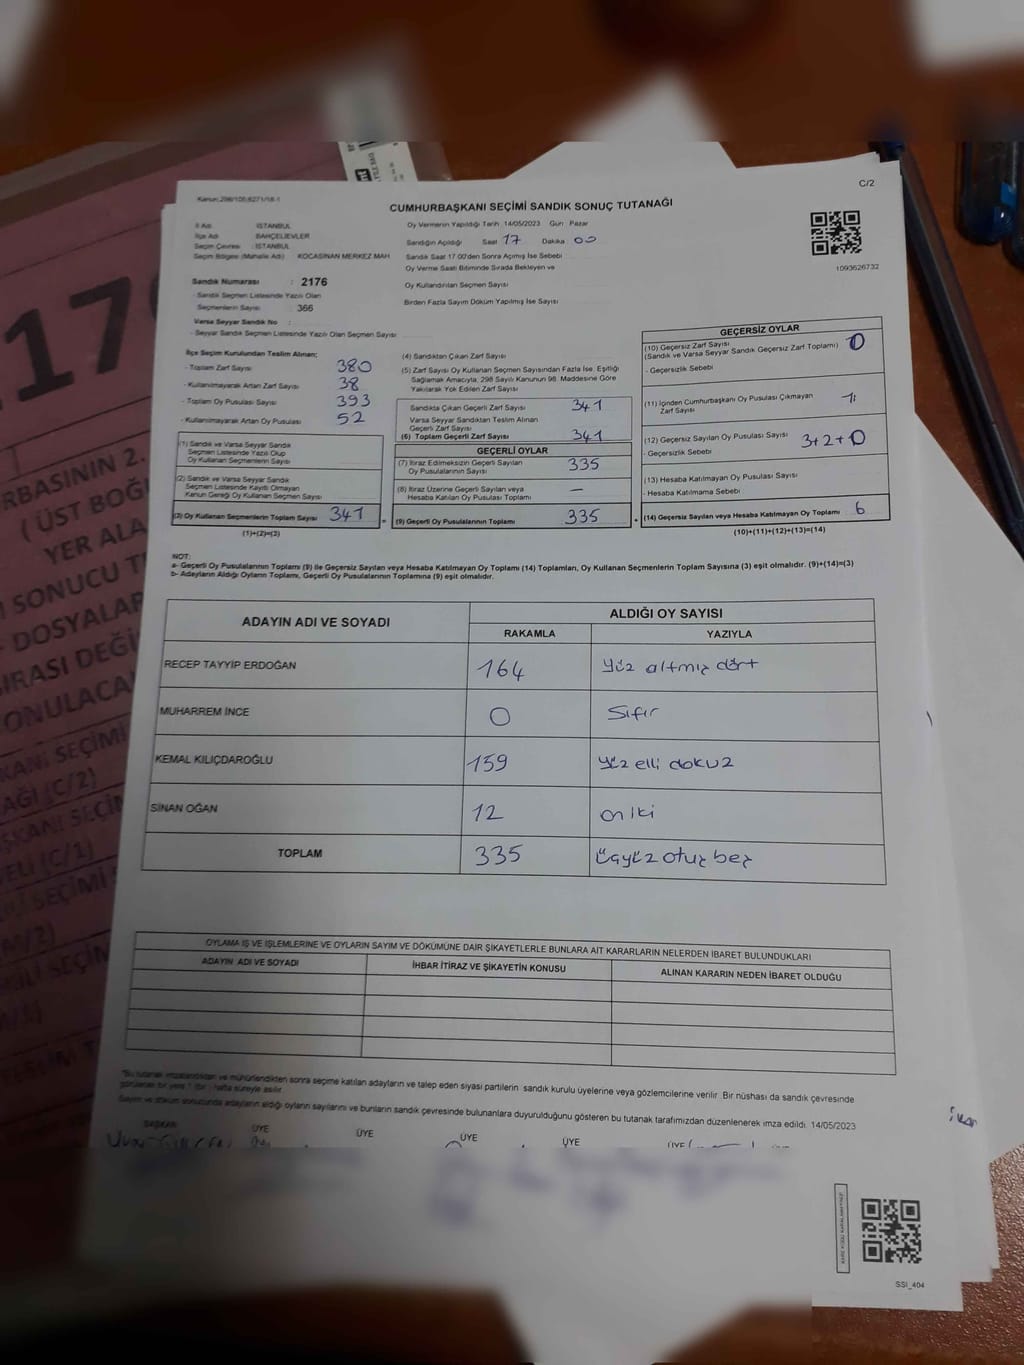 C/2
Kanun:298/105;6271/18-1
CUMHURBAŞKANI SEÇİMİ SANDIK SONUÇ TUTANAĞI
İl Adı : İSTANBUL
İlçe Adı : BAHÇELİEVLER
Seçim Çevresi : İSTANBUL
Seçim Bölgesi (Mahalle Adı) : KOCASİNAN MERKEZ MAH
Oy Vermenin Yapıldığı Tarih 14/05/2023 Gün : Pazar
Sandığın Açıldığı Saat 17 Dakika 00
Sandık Saat 17.00'den Sonra Açılmış İse Sebebi
Oy Verme Saati Bitiminde Sırada Bekleyen ve
Oy Kullandırılan Seçmen Sayısı
Birden Fazla Sayım Döküm Yapılmış İse Sayısı
1093626732
Sandık Numarası : 2176
- Sandık Seçmen Listesinde Yazılı Olan
Seçmenlerin Sayısı : 366
Varsa Seyyar Sandık No :
- Seyyar Sandık Seçmen Listesinde Yazılı Olan Seçmen Sayısı
İlçe Seçim Kurulundan Teslim Alınan;
- Toplam Zarf Sayısı 380
- Kullanılmayarak Artan Zarf Sayısı 38
- Toplam Oy Pusulası Sayısı 393
- Kullanılmayarak Artan Oy Pusulası 52
(1) Sandık ve Varsa Seyyar Sandık
Seçmen Listesinde Yazılı Olup
Oy Kullanan Seçmenlerin Sayısı
(2) Sandık ve Varsa Seyyar Sandık
Seçmen Listesinde Kayıtlı Olmayan
Kanun Gereği Oy Kullanan Seçmen Sayısı
(3) Oy Kullanan Seçmenlerin Toplam Sayısı 341
(1)+(2)=(3)
(4) Sandıktan Çıkan Zarf Sayısı
(5) Zarf Sayısı Oy Kullanan Seçmen Sayısından Fazla İse, Eşitliği
Sağlamak Amacıyla, 298 Sayılı Kanunun 98. Maddesine Göre
Yakılarak Yok Edilen Zarf Sayısı
Sandıkta Çıkan Geçerli Zarf Sayısı 341
Varsa Seyyar Sandıktan Teslim Alınan
Geçerli Zarf Sayısı
(6) Toplam Geçerli Zarf Sayısı 341
GEÇERLİ OYLAR
(7) İtiraz Edilmeksizin Geçerli Sayılan
Oy Pusulalarının Sayısı 335
(8) İtiraz Üzerine Geçerli Sayılan veya
Hesaba Katılan Oy Pusulası Toplamı —
(9) Geçerli Oy Pusulalarının Toplamı 335
GEÇERSİZ OYLAR
(10) Geçersiz Zarf Sayısı
(Sandık ve Varsa Seyyar Sandık Geçersiz Zarf Toplamı) 0
- Geçersizlik Sebebi
(11) İçinden Cumhurbaşkanı Oy Pusulası Çıkmayan
Zarf Sayısı 1
(12) Geçersiz Sayılan Oy Pusulası Sayısı 3+2+0
- Geçersizlik Sebebi
(13) Hesaba Katılmayan Oy Pusulası Sayısı
- Hesaba Katılmama Sebebi
(14) Geçersiz Sayılan veya Hesaba Katılmayan Oy Toplamı 6
(10)+(11)+(12)+(13)=(14)
NOT:
a- Geçerli Oy Pusulalarının Toplamı (9) ile Geçersiz Sayılan veya Hesaba Katılmayan Oy Toplamı (14) Toplamları, Oy Kullanan Seçmenlerin Toplam Sayısına (3) eşit olmalıdır. (9)+(14)=(3)
b- Adayların Aldığı Oyların Toplamı, Geçerli Oy Pusulalarının Toplamına (9) eşit olmalıdır.
ADAYIN ADI VE SOYADI
ALDIĞI OY SAYISI
RAKAMLA YAZIYLA
RECEP TAYYİP ERDOĞAN 164 Yüz altmış dört
MUHARREM İNCE 0 Sıfır
KEMAL KILIÇDAROĞLU 159 Yüz elli dokuz
SİNAN OĞAN 12 on iki
TOPLAM 335 Üçyüz otuz beş
OYLAMA İŞ VE İŞLEMLERİNE VE OYLARIN SAYIM VE DÖKÜMÜNE DAİR ŞİKAYETLERLE BUNLARA AİT KARARLARIN NELERDEN İBARET BULUNDUKLARI
ADAYIN ADI VE SOYADI İHBAR İTİRAZ VE ŞİKAYETİN KONUSU ALINAN KARARIN NEDEN İBARET OLDUĞU
*Bu tutanak imzalandıktan ve mühürlendikten sonra seçime katılan adayların ve talep eden siyasi partilerin sandık kurulu üyelerine veya gözlemcilerine verilir. Bir nüshası da sandık çevresinde
görülebilen bir yere 1 (bir) hafta süreyle asılır.
Sayım ve döküm sonucunda adayların aldığı oyların sayılarını ve bunların sandık çevresinde bulunanlara duyurulduğunu gösteren bu tutanak tarafımızdan düzenlenerek imza edildi. 14/05/2023
BAŞKAN ÜYE ÜYE ÜYE ÜYE ÜYE
SSI_404
RBASININ 2.
( ÜST BOĞ
YER ALA
SONUCU T
DOSYALAR
IRASI DEĞİ
ONULACA
KANI SEÇİMİ
AĞI (C/2)
ŞKANI SEÇİM
VELİ (C/1)